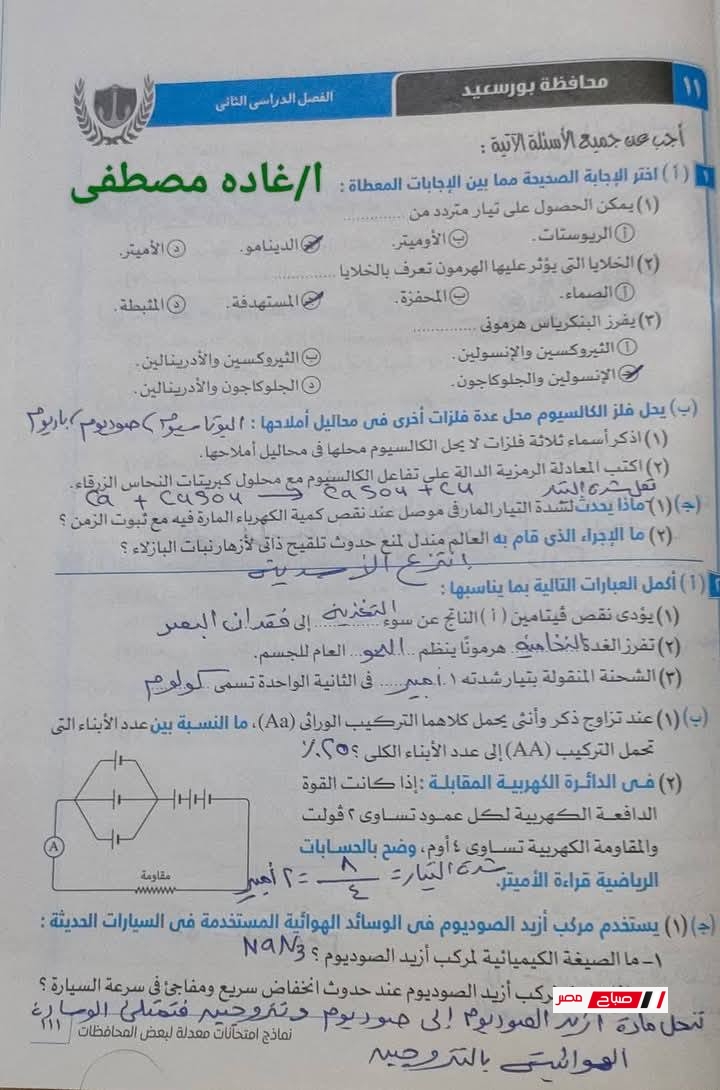 ١١ محافظة بورسعيد الفصل الدراسى الثانى
أجب عن جميع الأسئلة الآتية :
ا/غاده مصطفى
١ (أ) اختر الإجابة الصحيحة مما بين الإجابات المعطاة :
(١) يمكن الحصول على تيار متردد من ............
أ الريوستات. ب الأوميتر. ج الدينامو. د الأميتر.
(٢) الخلايا التى يؤثر عليها الهرمون تعرف بالخلايا ............
أ الصماء. ب المحفزة. ج المستهدفة. د المثبطة.
(٣) يفرز البنكرياس هرمونى ............
أ الثيروكسين والإنسولين. ب الثيروكسين والأدرينالين.
ج الإنسولين والجلوكاجون. د الجلوكاجون والأدرينالين.
(ب) يحل فلز الكالسيوم محل عدة فلزات أخرى فى محاليل أملاحها : البوتاسيوم، صوديوم، باريوم
(١) اذكر أسماء ثلاثة فلزات لا يحل الكالسيوم محلها فى محاليل أملاحها.
(٢) اكتب المعادلة الرمزية الدالة على تفاعل الكالسيوم مع محلول كبريتات النحاس الزرقاء.
Ca + CuSO4 → CaSO4 + Cu تقل شدة التيار
(ج) (١) ماذا يحدث لشدة التيار المار فى موصل عند نقص كمية الكهرباء المارة فيه مع ثبوت الزمن ؟
(٢) ما الإجراء الذى قام به العالم مندل لمنع حدوث تلقيح ذاتى لأزهار نبات البازلاء ؟
انتزع الأسدية
٢ (أ) أكمل العبارات التالية بما يناسبها :
(١) يؤدى نقص ڤيتامين (أ) الناتج عن سوء التغذية إلى فقدان البصر
(٢) تفرز الغدة النخامية هرمونًا ينظم النمو العام للجسم.
(٣) الشحنة المنقولة بتيار شدته ١ أمبير فى الثانية الواحدة تسمى كولوم
(ب) (١) عند تزاوج ذكر وأنثى يحمل كلاهما التركيب الوراثى (Aa)، ما النسبة بين عدد الأبناء التى
تحمل التركيب (AA) إلى عدد الأبناء الكلى ؟ ٢٥٪
(٢) فى الدائرة الكهربية المقابلة : إذا كانت القوة
الدافعة الكهربية لكل عمود تساوى ٢ ڤولت
والمقاومة الكهربية تساوى ٤ أوم، وضح بالحسابات
الرياضية قراءة الأميتر. شدة التيار = ٨/٤ = ٢ أمبير
A
مقاومة
(ج) (١) يستخدم مركب أزيد الصوديوم فى الوسائد الهوائية المستخدمة فى السيارات الحديثة :
١- ما الصيغة الكيميائية لمركب أزيد الصوديوم ؟ NaN3
مركب أزيد الصوديوم عند حدوث انخفاض سريع ومفاجئ فى سرعة السيارة ؟
صباح مصر
تنحل مادة أزيد الصوديوم إلى صوديوم ونتروجين فتمتلئ الوسادة
١١١ نماذج امتحانات معدلة لبعض المحافظات
الهوائية بالنتروجين